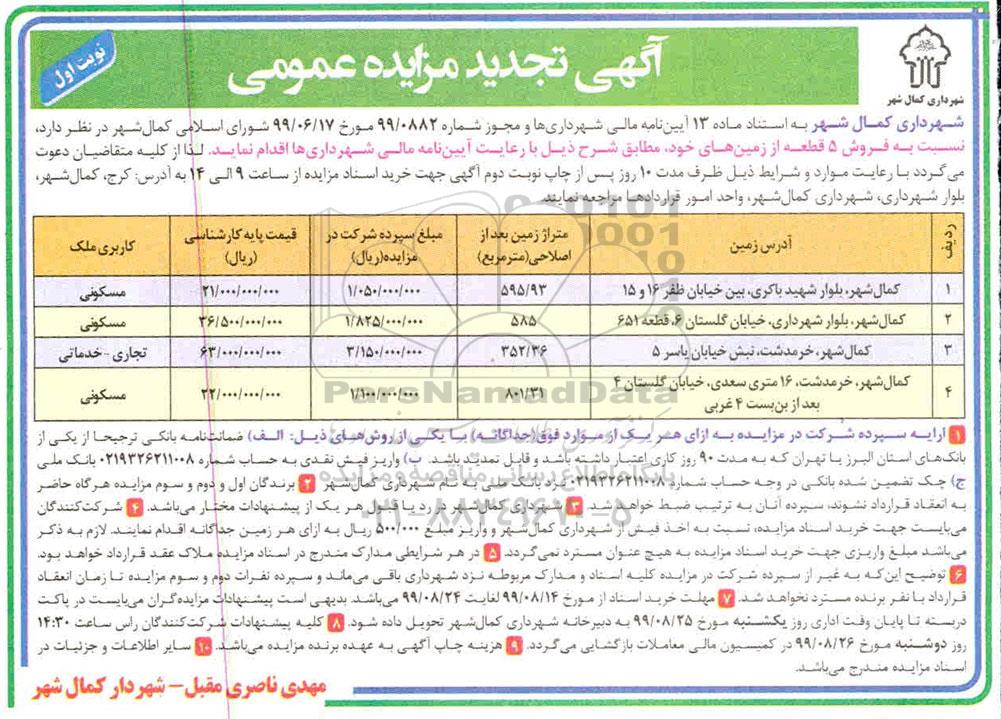 نوبت اول
آگهی تجدید مزایده عمومی
شهرداری کمال شهر
شهرداری کمال شهر به استناد ماده ۱۳ آیین‌نامه مالی شهرداری‌ها و مجوز شماره ۹۹/۰۸۸۲ مورخ ۹۹/۰۶/۱۷ شورای اسلامی کمال‌شهر در نظر دارد،
نسبت به فروش ۵ قطعه از زمین‌های خود، مطابق شرح ذیل با رعایت آیین‌نامه مالی شهرداری‌ها اقدام نماید. لذا از کلیه متقاضیان دعوت
می‌گردد با رعایت موارد و شرایط ذیل ظرف مدت ۱۰ روز پس از چاپ نوبت دوم آگهی جهت خرید اسناد مزایده از ساعت ۹ الی ۱۴ به آدرس: کرج، کمال‌شهر،
بلوار شهرداری، شهرداری کمال‌شهر، واحد امور قراردادها مراجعه نمایند.
ردیف | آدرس زمین | متراژ زمین بعد از اصلاحی(مترمربع) | مبلغ سپرده شرکت در مزایده(ریال) | قیمت پایه کارشناسی (ریال) | کاربری ملک
۱ | کمال‌شهر، بلوار شهید باکری، بین خیابان ظفر ۱۶ و ۱۵ | ۵۹۵/۹۳ | ۱/۰۵۰/۰۰۰/۰۰۰ | ۲۱/۰۰۰/۰۰۰/۰۰۰ | مسکونی
۲ | کمال‌شهر، بلوار شهرداری، خیابان گلستان ۶، قطعه ۶۵۱ | ۵۸۵ | ۱/۸۲۵/۰۰۰/۰۰۰ | ۳۶/۵۰۰/۰۰۰/۰۰۰ | مسکونی
۳ | کمال‌شهر، خرمدشت، نبش خیابان یاسر ۵ | ۳۵۲/۳۶ | ۳/۱۵۰/۰۰۰/۰۰۰ | ۶۳/۰۰۰/۰۰۰/۰۰۰ | تجاری - خدماتی
۴ | کمال‌شهر، خرمدشت، ۱۶ متری سعدی، خیابان گلستان ۴ بعد از بن‌بست ۴ غربی | ۸۰۱/۳۱ | ۱/۱۰۰/۰۰۰/۰۰۰ | ۲۲/۰۰۰/۰۰۰/۰۰۰ | مسکونی
ParsNamadData
۱ ارایه سپرده شرکت در مزایده به ازای هر یک از موارد فوق(جداگانه) با یکی از روش‌های ذیل: الف) ضمانت‌نامه بانکی ترجیحا از یکی از
بانک‌های استان البرز یا تهران که به مدت ۹۰ روز کاری اعتبار داشته باشد و قابل تمدید باشد. ب) واریز فیش نقدی به حساب شماره ۰۲۱۹۳۲۶۲۱۱۰۰۸ بانک ملی
ج) چک تضمین شده بانکی در وجه حساب شماره ۰۲۱۹۳۲۶۲۱۱۰۰۸ نزد بانک ملی به نام شهرداری کمال‌شهر ۲ برندگان اول و دوم و سوم مزایده هرگاه حاضر
به انعقاد قرارداد نشوند، سپرده آنان به ترتیب ضبط خواهد شد. ۳ شهرداری کمال‌شهر در رد یا قبول هر یک از پیشنهادات مختار می‌باشد. ۴ شرکت‌کنندگان
می‌بایست جهت خرید اسناد مزایده، نسبت به اخذ فیش از شهرداری کمال‌شهر و واریز مبلغ ۵۰۰/۰۰۰ ریال به ازای هر زمین جداگانه اقدام نمایند. لازم به ذکر
می‌باشد مبلغ واریزی جهت خرید اسناد مزایده به هیچ عنوان مسترد نمی‌گردد. ۵ در هر شرایطی مدارک مندرج در اسناد مزایده ملاک عقد قرارداد خواهد بود.
۶ توضیح این‌که به غیر از سپرده شرکت در مزایده کلیه اسناد و مدارک مربوطه نزد شهرداری باقی می‌ماند و سپرده نفرات دوم و سوم مزایده تا زمان انعقاد
قرارداد با نفر برنده مسترد نخواهد شد. ۷ مهلت خرید اسناد از مورخ ۹۹/۰۸/۱۴ لغایت ۹۹/۰۸/۲۴ می‌باشد. بدیهی است پیشنهادات مزایده‌گران می‌بایست در پاکت
دربسته تا پایان وقت اداری روز یکشنبه مورخ ۹۹/۰۸/۲۵ به دبیرخانه شهرداری کمال‌شهر تحویل داده شود. ۸ کلیه پیشنهادات شرکت‌کنندگان راس ساعت ۱۴:۳۰
روز دوشنبه مورخ ۹۹/۰۸/۲۶ در کمیسیون مالی معاملات بازگشایی می‌گردد. ۹ هزینه چاپ آگهی به عهده برنده مزایده می‌باشد. ۱۰ سایر اطلاعات و جزئیات در
اسناد مزایده مندرج می‌باشد.
مهدی ناصری مقبل – شهردار کمال شهر